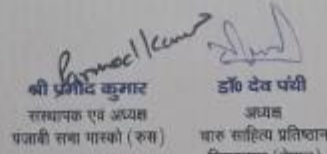 Parmod Kumar
श्री प्रमोद कुमार
संस्थापक एवं अध्यक्ष
पंजाबी सभा मास्को (रूस)
डॉ० देव पंथी
अध्यक्ष
चारु साहित्य प्रतिष्ठान